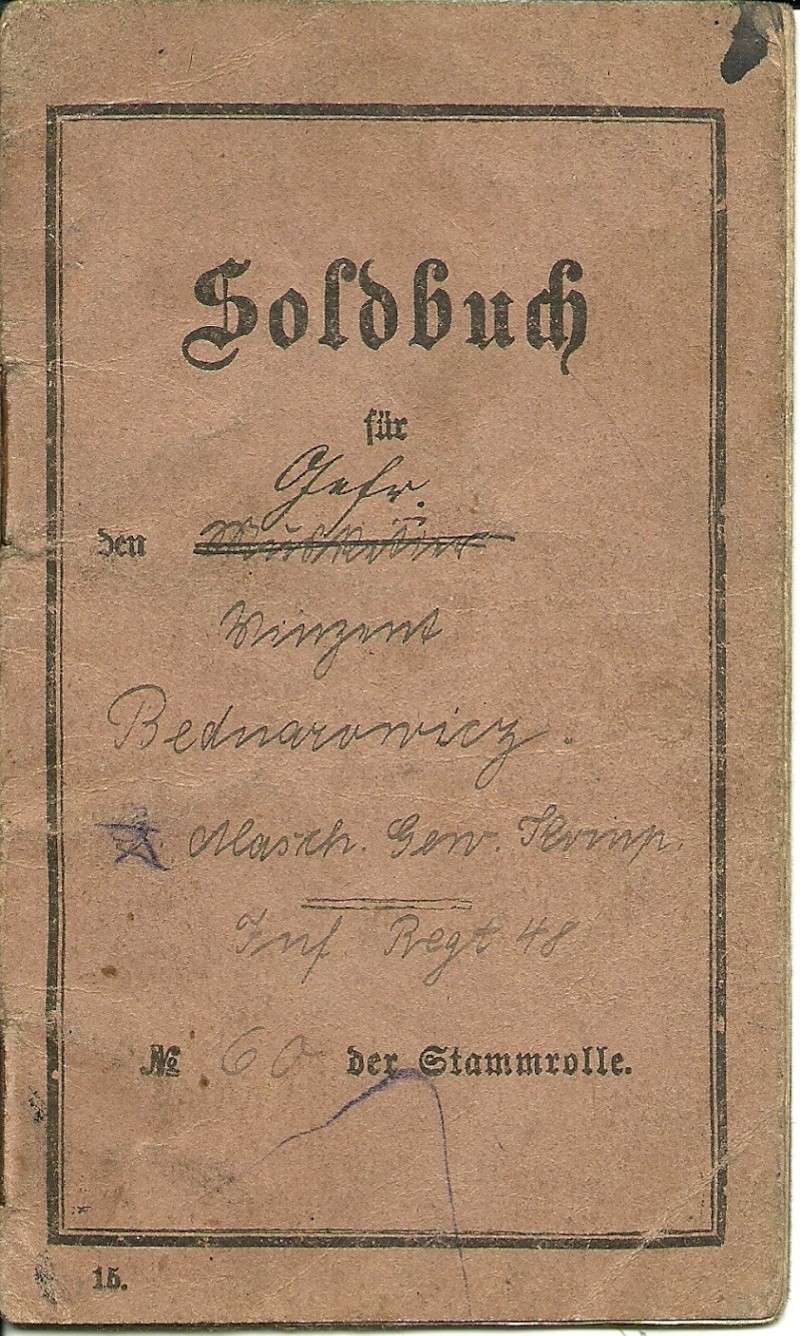 Soldbuch
für
Gefr.
den Musketier
Vinzent
Bednarowicz.
Masch. Gew. Komp.
Inf. Regt 48
№ 60 der Stammrolle.
15.